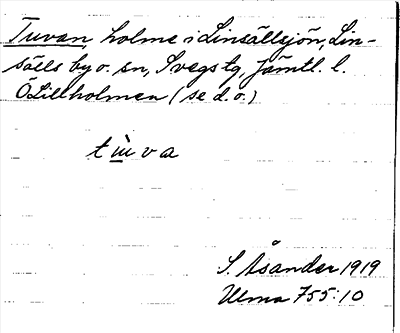 Tuvan, holme i Linsällsjön, Lin-
sälls by o. sn, Svegs tg, Jämtl. l.
Ö Lillholmen (se d. o.)
tùva
S. Åsander 1919
Ulma 755:10